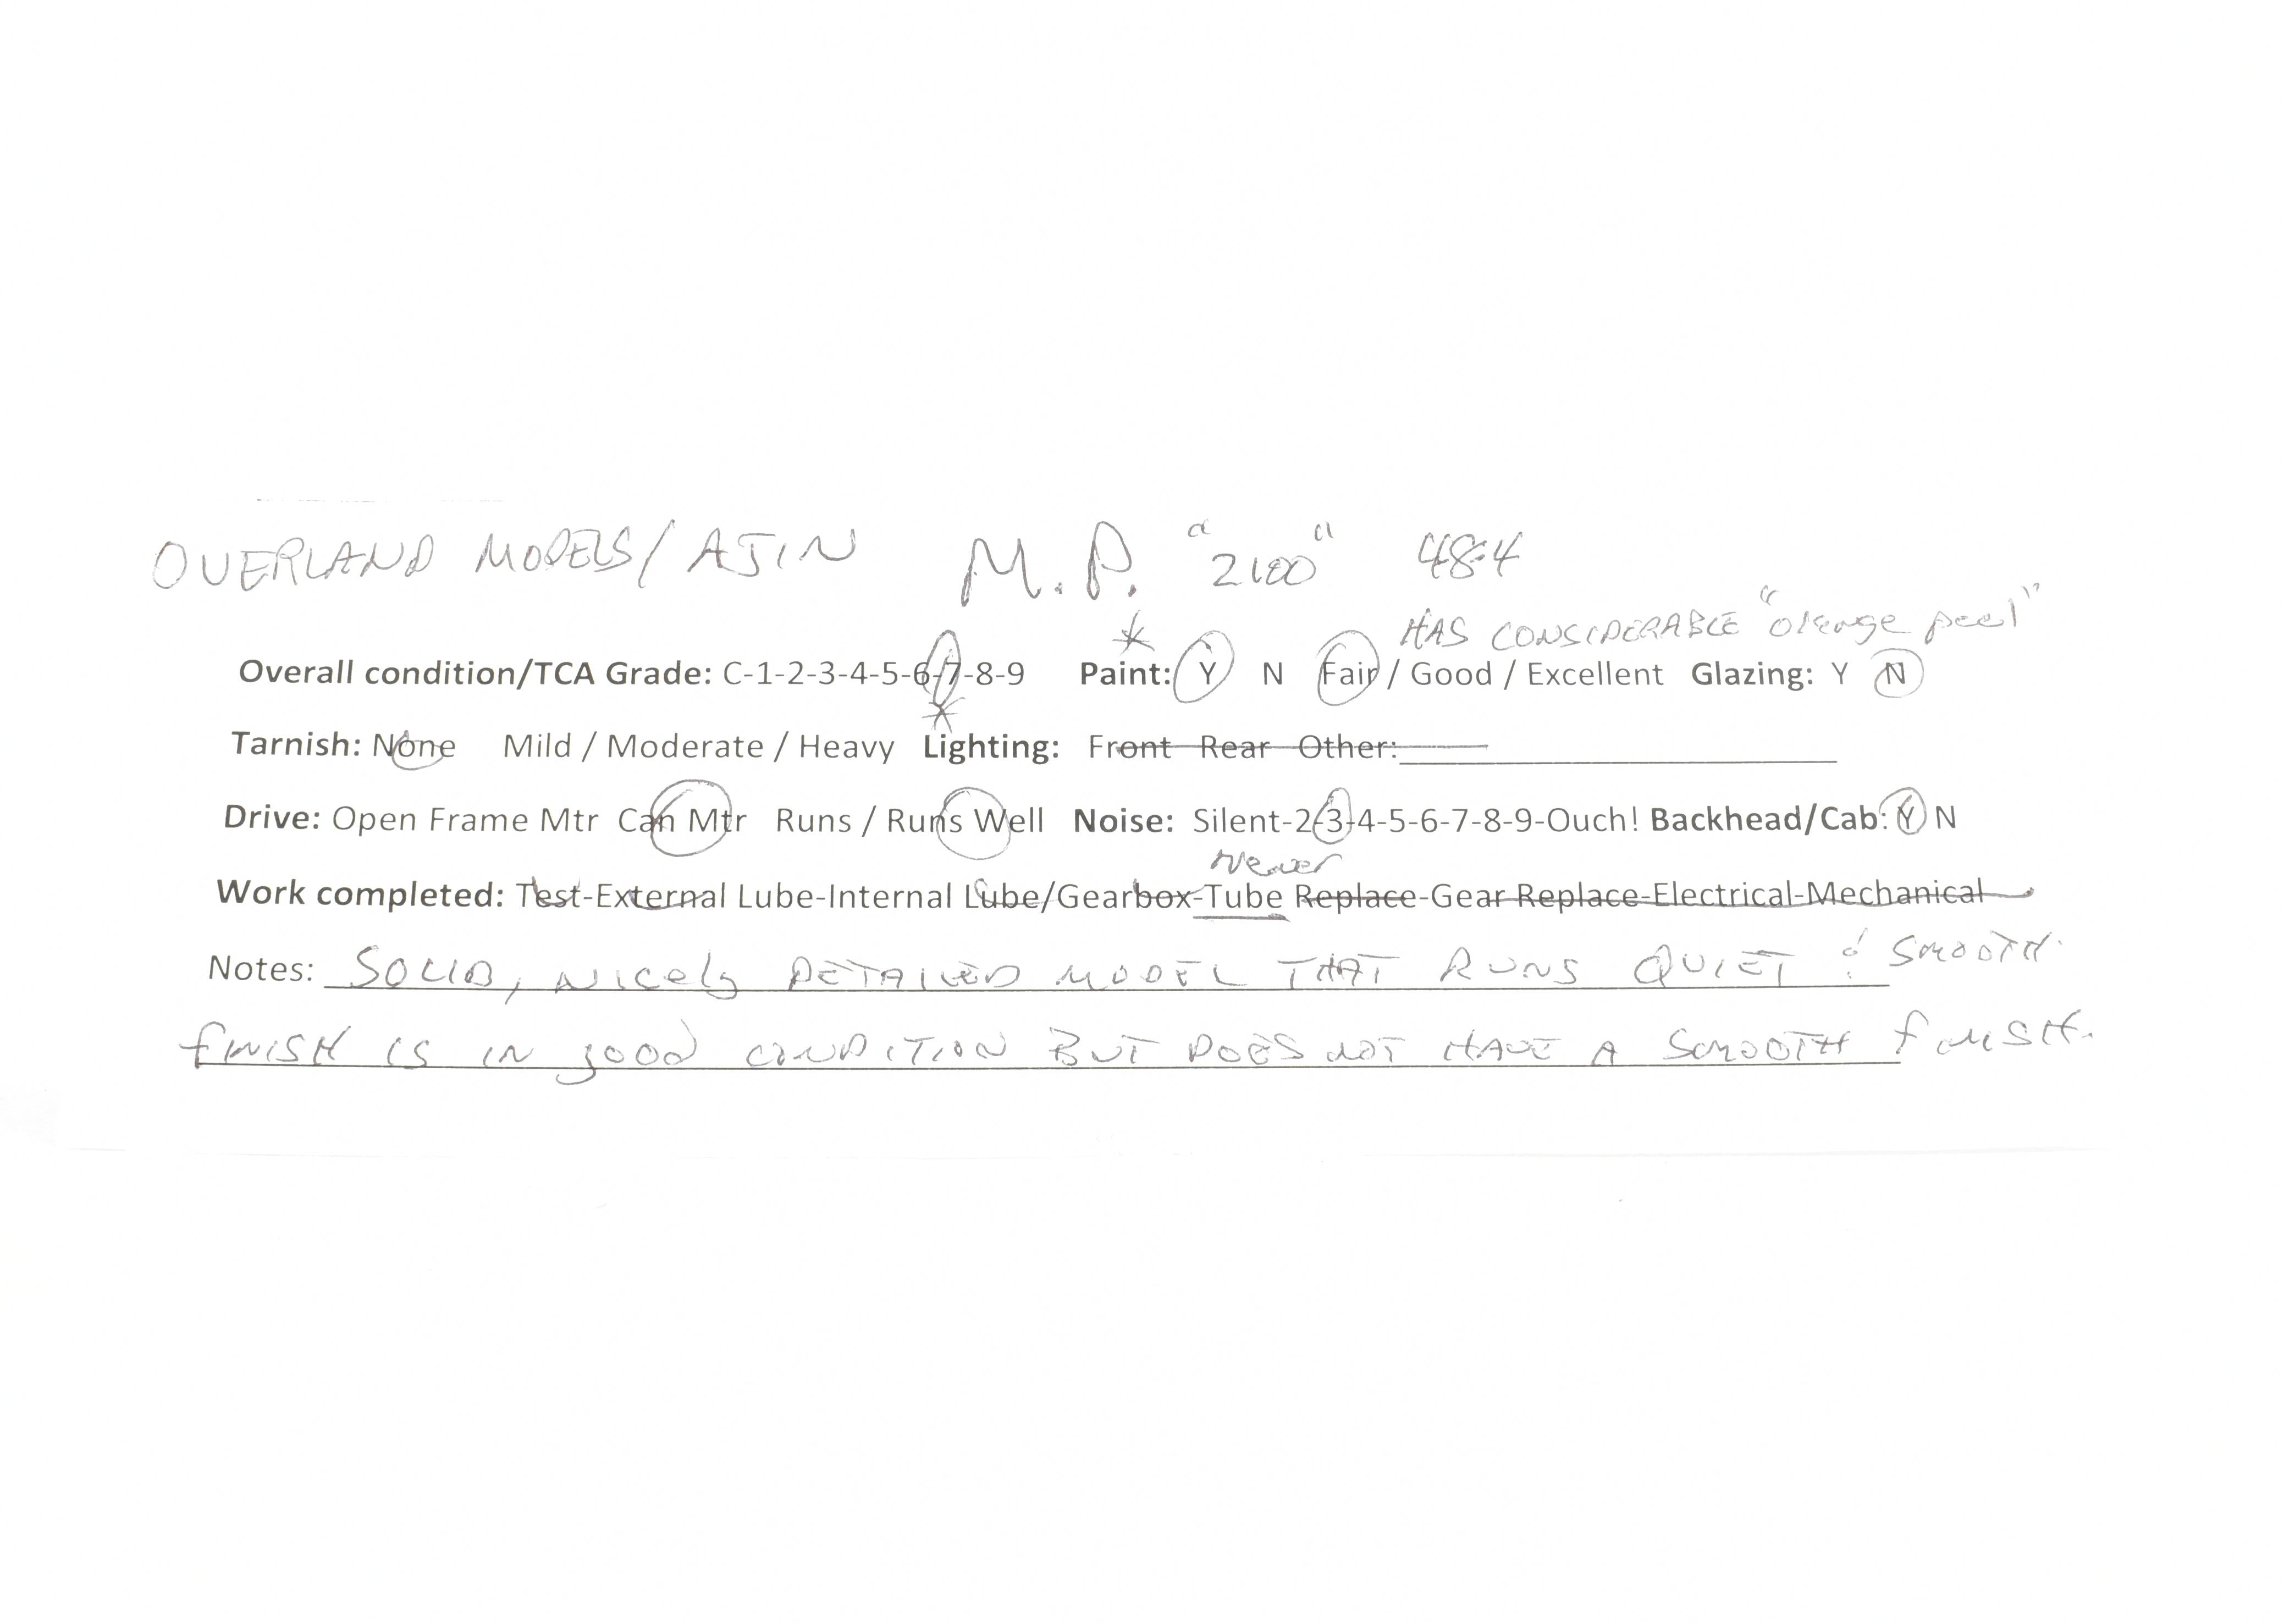 OVERLAND MODELS/AJIN M.P. "2100" 48:4
HAS CONSIDERABLE "orange peel"
Overall condition/TCA Grade: C-1-2-3-4-5-6-7-8-9 * Paint: Y N Fair / Good / Excellent Glazing: Y N
Tarnish: None Mild / Moderate / Heavy * Lighting: Front Rear Other:
Drive: Open Frame Mtr Can Mtr Runs / Runs Well Noise: Silent-2-3-4-5-6-7-8-9-Ouch! Backhead/Cab: Y N
Newer
Work completed: Test-External Lube-Internal Lube/Gearbox-Tube Replace-Gear Replace-Electrical-Mechanical
Notes: SOLID, NICELY DETAILED MODEL THAT RUNS QUIET & SMOOTH.
FINISH IS IN good CONDITION BUT DOES NOT HAVE A SMOOTH FINISH.